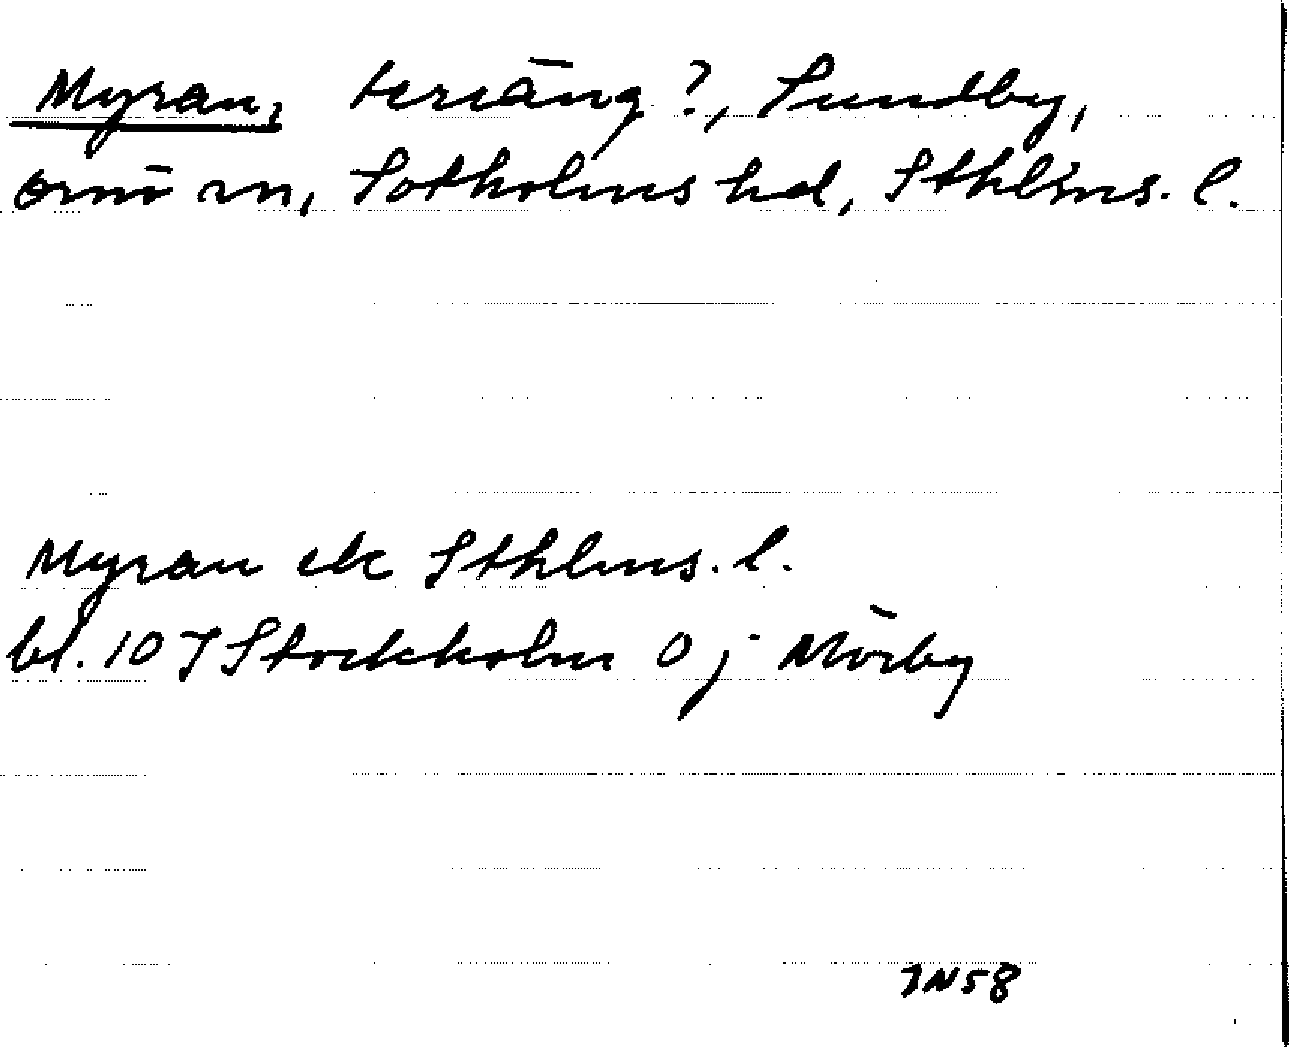 Myran, terräng?, Sundby,
Ornö sn, Sotholms hd, Sthlms. l.
Myran ek Sthlms. l.
bl. 10 J Stockholm O j Mörby
JN58